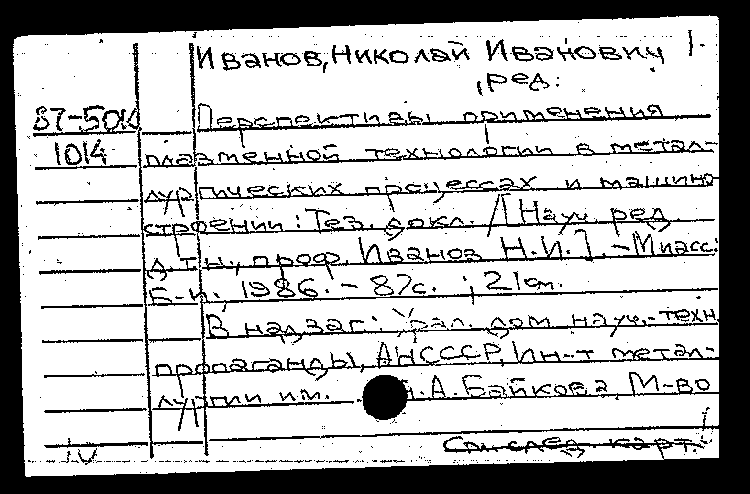 Иванов, Николай Иванович 1.
, ред.
87-5014 Перспективы применения
1014 плазменной технологии в метал-
лургических процессах и машино-
строении: Тез. докл. / [Науч. ред.
д.т.н., проф. Иванов Н.И.]. - Миасс:
Б.и., 1986. - 87с. ; 21см.
В надзаг: Урал. дом науч.-техн.
пропаганды, АНСССР, Ин-т метал-
лургии им. А.А. Байкова, М-во
См. след. карт.